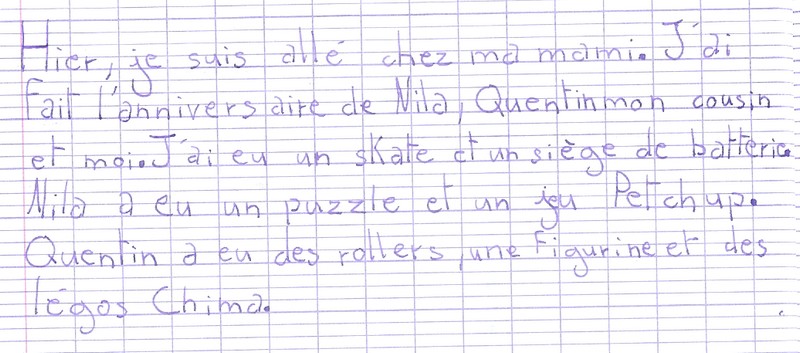 Hier, je suis allé chez ma mami. J'ai
fait l'anniversaire de Nila, Quentin mon cousin
et moi. J'ai eu un skate et un siège de batterie.
Nila a eu un puzzle et un jeu Petchup.
Quentin a eu des rollers, une figurine et des
légos Chima.